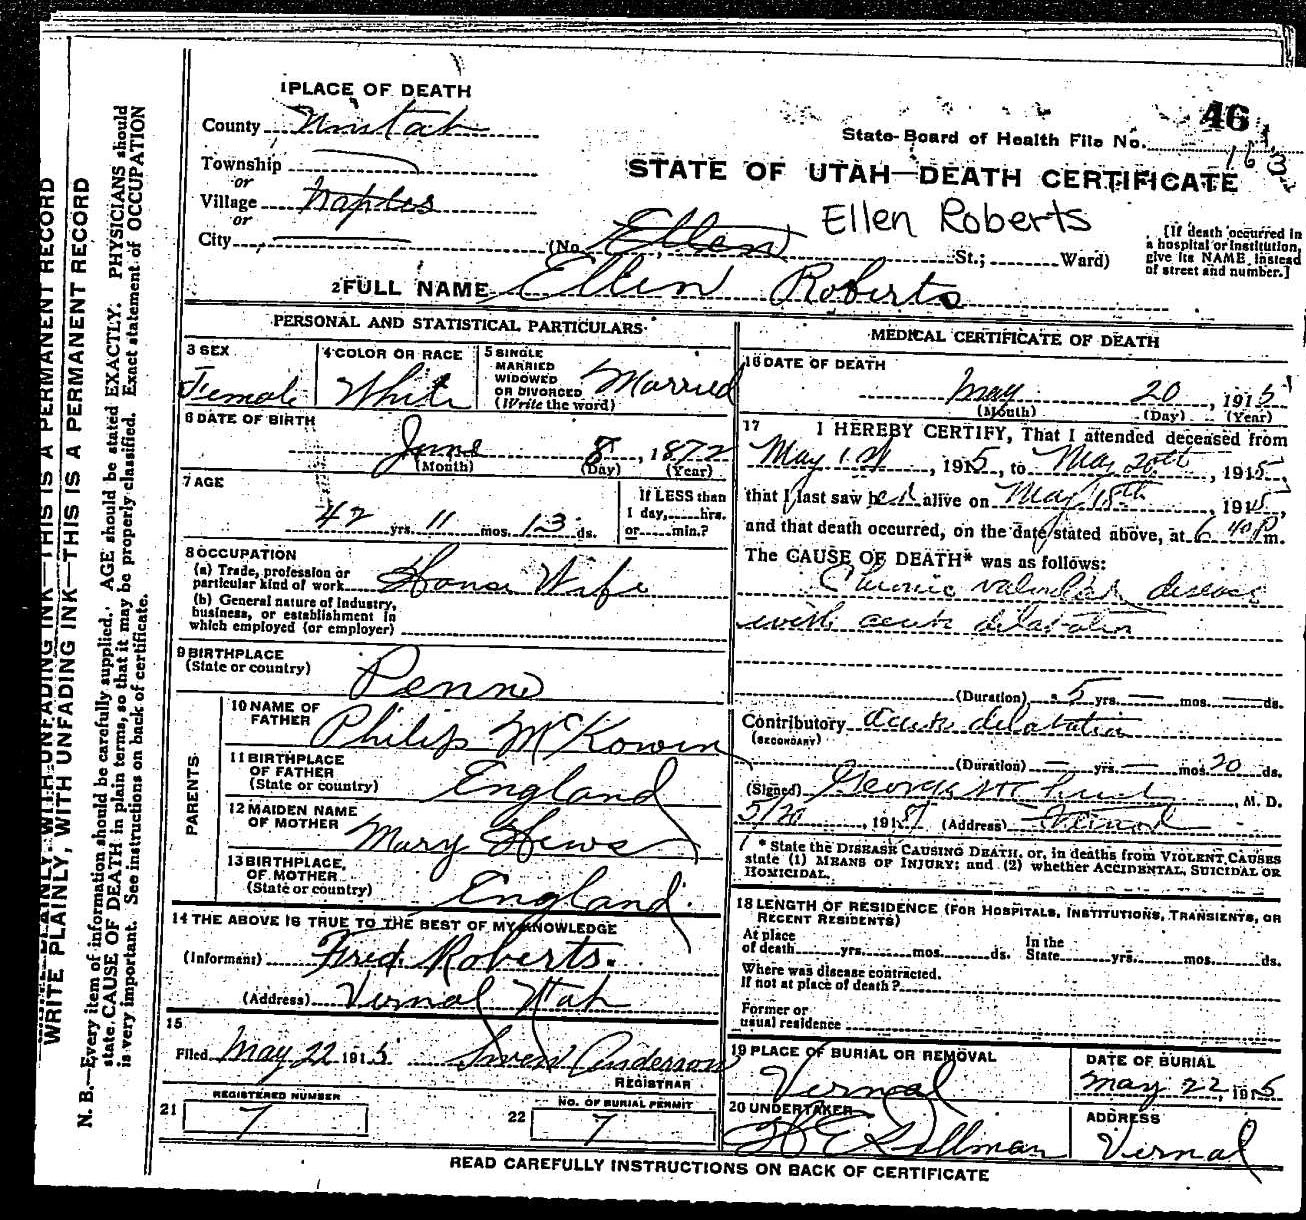 1 PLACE OF DEATH
County Uintah
Township
or
Village Naples
or
City (No. Ellen St.; Ward)
46
State Board of Health File No.
163
STATE OF UTAH—DEATH CERTIFICATE
Ellen Roberts
[If death occurred in
a hospital or institution,
give its NAME instead
of street and number.]
2 FULL NAME Ellen Roberts
PERSONAL AND STATISTICAL PARTICULARS
3 SEX
Female
4 COLOR OR RACE
White
5 SINGLE
MARRIED
WIDOWED
OR DIVORCED
(Write the word)
Married
6 DATE OF BIRTH
June 8, 1872
(Month) (Day) (Year)
7 AGE
42 yrs. 11 mos. 13 ds.
If LESS than
1 day, hrs.
or min.?
8 OCCUPATION
(a) Trade, profession or
particular kind of work House Wife
(b) General nature of industry,
business, or establishment in
which employed (or employer)
9 BIRTHPLACE
(State or country) Penn
PARENTS
10 NAME OF
FATHER Philip McKowen
11 BIRTHPLACE
OF FATHER
(State or country) England
12 MAIDEN NAME
OF MOTHER Mary Hews
13 BIRTHPLACE
OF MOTHER
(State or country) England
14 THE ABOVE IS TRUE TO THE BEST OF MY KNOWLEDGE
(Informant) Fred Roberts.
(Address) Vernal Utah
15
Filed May 22 1915 Swen Anderson
REGISTRAR
21 REGISTERED NUMBER
7
22 NO. OF BURIAL PERMIT
7
MEDICAL CERTIFICATE OF DEATH
16 DATE OF DEATH
May 20, 1915
(Month) (Day) (Year)
17 I HEREBY CERTIFY, That I attended deceased from
May 1st, 1915, to May 20th, 1915,
that I last saw her alive on May 18th, 1915,
and that death occurred, on the date stated above, at 6 40 P m.
The CAUSE OF DEATH* was as follows:
Chronic valvular disease
with acute dilatation
(Duration) 5 yrs. — mos. — ds.
Contributory acute dilatation
(SECONDARY)
(Duration) — yrs. — mos. 20 ds.
(Signed) George , M. D.
5/20, 191 (Address) Vernal
* State the DISEASE CAUSING DEATH, or, in deaths from VIOLENT CAUSES
state (1) MEANS OF INJURY; and (2) whether ACCIDENTAL, SUICIDAL OR
HOMICIDAL.
18 LENGTH OF RESIDENCE (FOR HOSPITALS, INSTITUTIONS, TRANSIENTS, OR
RECENT RESIDENTS)
At place
of death yrs. mos. ds.
In the
State yrs. mos. ds.
Where was disease contracted.
If not at place of death?
Former or
usual residence
19 PLACE OF BURIAL OR REMOVAL
Vernal
DATE OF BURIAL
May 22, 1915
20 UNDERTAKER
Dillman
ADDRESS
Vernal
READ CAREFULLY INSTRUCTIONS ON BACK OF CERTIFICATE
WRITE PLAINLY, WITH UNFADING INK—THIS IS A PERMANENT RECORD
WRITE PLAINLY, WITH UNFADING INK—THIS IS A PERMANENT RECORD
N. B.—Every item of information should be carefully supplied. AGE should be stated EXACTLY. PHYSICIANS should
state CAUSE OF DEATH in plain terms, so that it may be properly classified. Exact statement of OCCUPATION
is very important. See instructions on back of certificate.